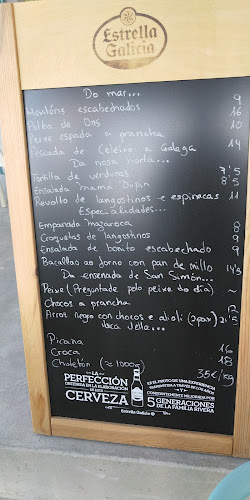 Estrella
Galicia
Do mar...
Mexillóns escabechados 9
Polbo de Ons 16
Peixe espada a prancha 10
Pescada de Celeiro a Galega 14
Da nosa horta...
Tortilla de verduras 7'5
Ensalada mamá Dupin 8'5
Revolto de langostinos e espinacas 11
Especialidades...
Empanada mazaroca 8
Croquetas de langostinos 9
Ensalada de bonito escabechado 9
Bacallao ao forno con pan de millo 14'5
Da enseada de San Simón...
Peixe (Preguntade polo peixe do día) ~
Chocos a prancha 12
Arroz negro con chocos e alioli (2pax) 21'5
Vaca Vella...
Picaña 16
Croca 18
Chuletón (≈ 1000g) 35€/kg
LA
PERFECCIÓN
OBTENIDA EN LA ELABORACIÓN
DE UNA
CERVEZA
ES EL FRUTO DE UNA EXPERIENCIA
TRANSMITIDA A TRAVÉS DE LOS AÑOS
Y
CONSTANTEMENTE MEJORADA POR
5 GENERACIONES
DE LA FAMILIA RIVERA
Estrella Galicia